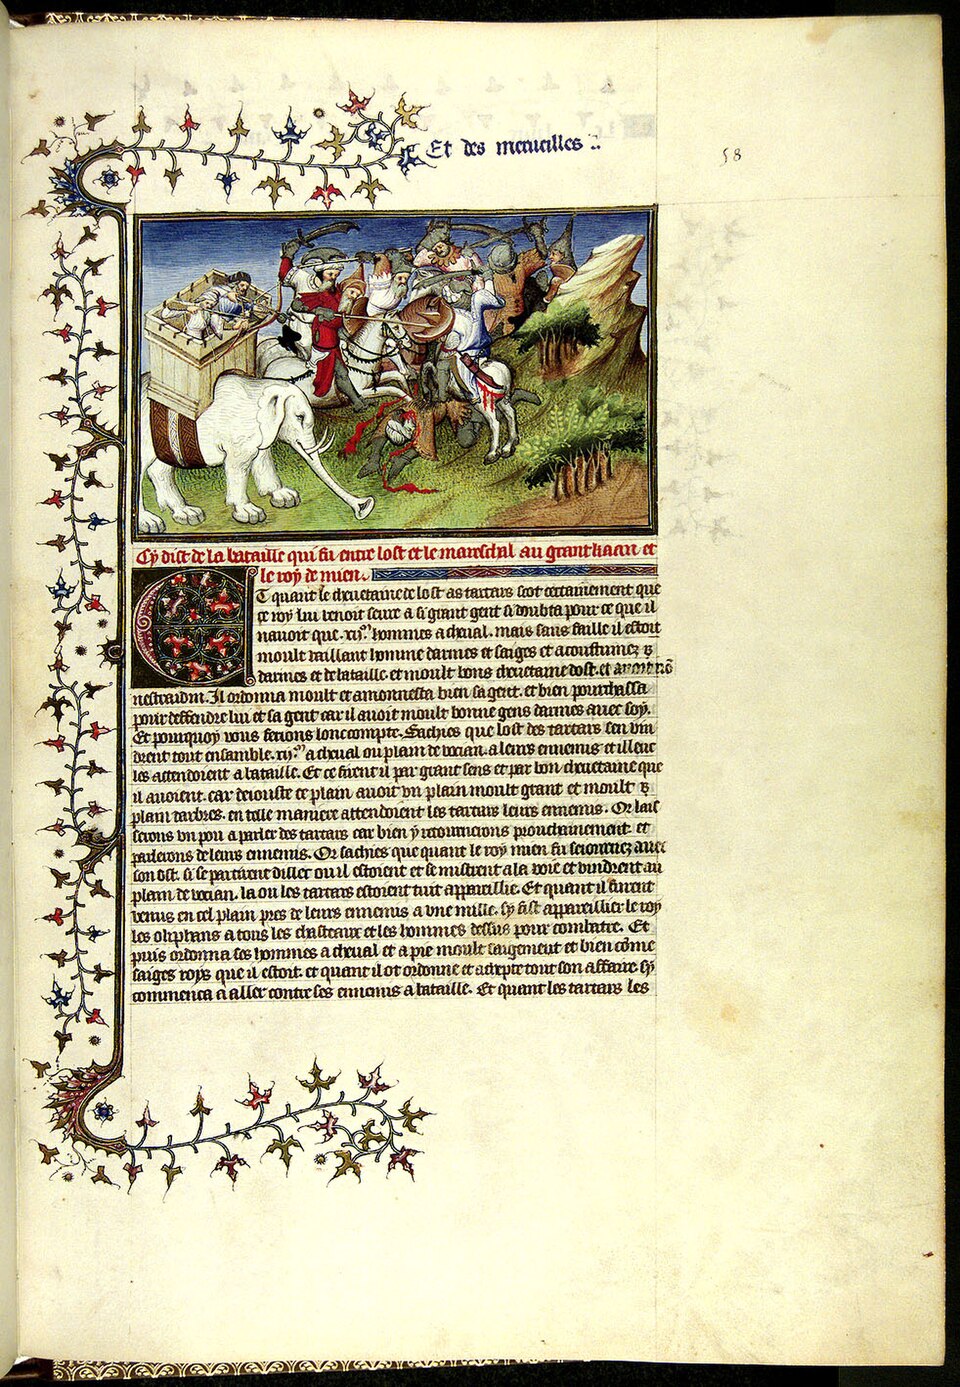 Et des merueilles
58
Cy dist de la bataille qui fu entre lost et le mareschal au grant kaan et
le roy de mien.
Et quant le cheuetaine de lost as tartars scot certainement que
ce roy lui venoit seure a si grant gent si doubta pour ce que il
nauoit que .xij.ͫ hommes a cheual. mais sans faille il estoit
moult vaillant homme darmes et saiges et acoustumez
darmes et de bataille. et moult bons cheuetaine dost. et
Il ordonna moult et amonnesta bien sa gent. et bien pourchassa
pour deffendre lui et sa gent car il auoit moult bonne gens darmes auec soy.
Et pourquoy vous ferons loncompte. Sachies que lost des tartars sen vin
drent tout ensamble .xij.ͫ a cheual ou plain de vocian. a leurs ennemis et illeuc
les attendoient a bataille. Et ce firent il par grant sens et par bon cheuetaine que
il auoient. car deiouste ce plain auoit vn plain moult grant et moult
plain darbres. en telle maniere attendoient les tartars leurs ennemis. Or lais
serons vn pou a parler des tartars car bien y retourneions prouchainement. et
parlerons de leurs ennemis. Or sachies que quant le roy mien fu seiournez auec
son ost. si se partirent diller ou il estoient et se mistrent a la voie et vindrent au
plain de vocian. la ou les tartars estoient tuit appareillie. Et quant il furent
venus en cel plain pres de leurs ennemis a vne mille. sy fist appareillier le roy
les oliphans a tous les chasteaux et les hommes dessus pour combatre. Et
puis ordonna ses hommes a cheual et a pie moult saigement et bien cōme
saiges roys que il estoit. et quant il ot ordonne et tout son affaire. sy
commenca a aller contre ses ennemis a bataille. Et quant les tartars les